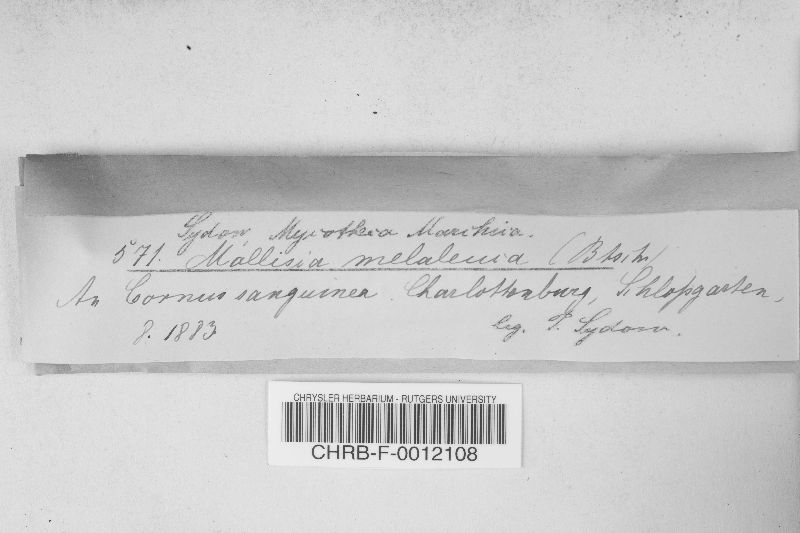 Sydow, Mycotheca Marchica.
571. Mollisia melaleuca (Btsch)
An Cornus sanguinea. Charlottenburg, Schloßgarten,
8. 1883 leg. P. Sydow.
CHRYSLER HERBARIUM - RUTGERS UNIVERSITY
CHRB-F-0012108